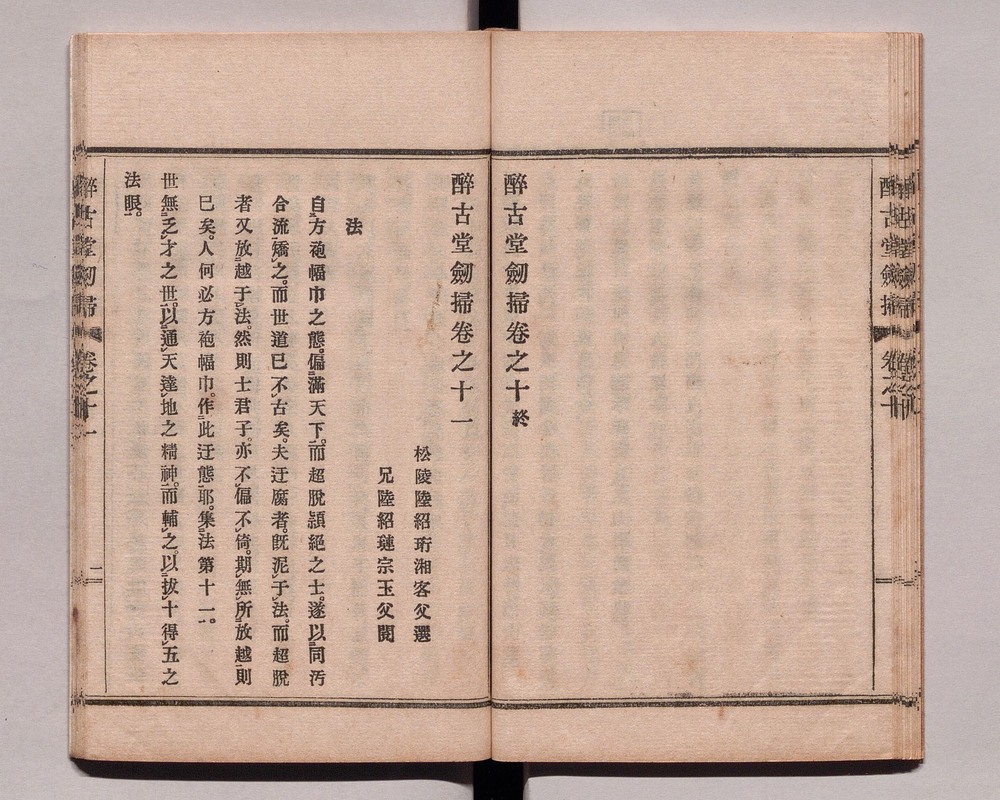 醉古堂劒掃卷之十終
醉古堂劒掃卷之十一
松陵陸紹珩湘客父選
兄陸紹璉宗玉父閱
法
自方袍幅巾之態。偏滿天下。而超脫頴絕之士。遂以同汚
合流。矯之。而世道已不古矣。夫迂腐者。既泥于法。而超脫
者又放越于法。然則士君子。亦不偏不倚。期無所放越則
已矣。人何必方袍幅巾。作此迂態耶。集法第十一。
世無乏才之世。以通天達地之精神。而輔之。以拔十得五之
法眼。
醉古堂劒掃
卷之十一
二
醉古堂劒掃
卷之十